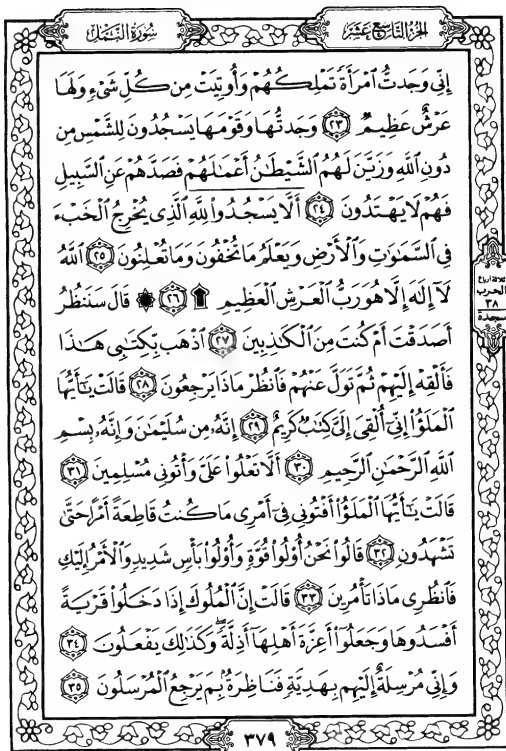 سُورَةُ النَّمْلِ
الجُزْءُ التَّاسِعَ عَشَرَ
إِنِّي وَجَدتُّ ٱمْرَأَةً تَمْلِكُهُمْ وَأُوتِيَتْ مِن كُلِّ شَىْءٍ وَلَهَا
عَرْشٌ عَظِيمٌ ٢٣ وَجَدتُّهَا وَقَوْمَهَا يَسْجُدُونَ لِلشَّمْسِ مِن
دُونِ ٱللَّهِ وَزَيَّنَ لَهُمُ ٱلشَّيْطَٰنُ أَعْمَٰلَهُمْ فَصَدَّهُمْ عَنِ ٱلسَّبِيلِ
فَهُمْ لَا يَهْتَدُونَ ٢٤ أَلَّا يَسْجُدُوا۟ لِلَّهِ ٱلَّذِى يُخْرِجُ ٱلْخَبْءَ
فِى ٱلسَّمَٰوَٰتِ وَٱلْأَرْضِ وَيَعْلَمُ مَا تُخْفُونَ وَمَا تُعْلِنُونَ ٢٥ ٱللَّهُ
لَآ إِلَٰهَ إِلَّا هُوَ رَبُّ ٱلْعَرْشِ ٱلْعَظِيمِ ۩ ٢٦ ۞ قَالَ سَنَنظُرُ
أَصَدَقْتَ أَمْ كُنتَ مِنَ ٱلْكَٰذِبِينَ ٢٧ ٱذْهَب بِّكِتَٰبِى هَٰذَا
فَأَلْقِهْ إِلَيْهِمْ ثُمَّ تَوَلَّ عَنْهُمْ فَٱنظُرْ مَاذَا يَرْجِعُونَ ٢٨ قَالَتْ يَٰٓأَيُّهَا
ٱلْمَلَؤُا۟ إِنِّىٓ أُلْقِىَ إِلَىَّ كِتَٰبٌ كَرِيمٌ ٢٩ إِنَّهُۥ مِن سُلَيْمَٰنَ وَإِنَّهُۥ بِسْمِ
ٱللَّهِ ٱلرَّحْمَٰنِ ٱلرَّحِيمِ ٣٠ أَلَّا تَعْلُوا۟ عَلَىَّ وَأْتُونِى مُسْلِمِينَ ٣١
قَالَتْ يَٰٓأَيُّهَا ٱلْمَلَؤُا۟ أَفْتُونِى فِىٓ أَمْرِى مَا كُنتُ قَاطِعَةً أَمْرًا حَتَّىٰ
تَشْهَدُونِ ٣٢ قَالُوا۟ نَحْنُ أُو۟لُوا۟ قُوَّةٍ وَأُو۟لُوا۟ بَأْسٍ شَدِيدٍ وَٱلْأَمْرُ إِلَيْكِ
فَٱنظُرِى مَاذَا تَأْمُرِينَ ٣٣ قَالَتْ إِنَّ ٱلْمُلُوكَ إِذَا دَخَلُوا۟ قَرْيَةً
أَفْسَدُوهَا وَجَعَلُوٓا۟ أَعِزَّةَ أَهْلِهَآ أَذِلَّةً ۖ وَكَذَٰلِكَ يَفْعَلُونَ ٣٤
وَإِنِّى مُرْسِلَةٌ إِلَيْهِم بِهَدِيَّةٍ فَنَاظِرَةٌۢ بِمَ يَرْجِعُ ٱلْمُرْسَلُونَ ٣٥
ثلاثة أرباع
الحزب
٣٨
سجدة
٣٧٩